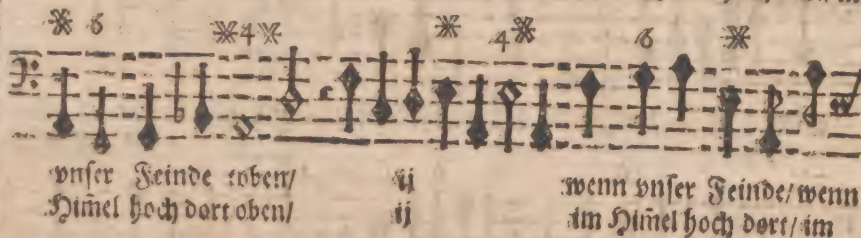 6 4 4 6
vnser Feinde toben/ ij wenn vnser Feinde/ wenn
Him̃el hoch dort oben/ ij im Him̃el hoch dort/ im